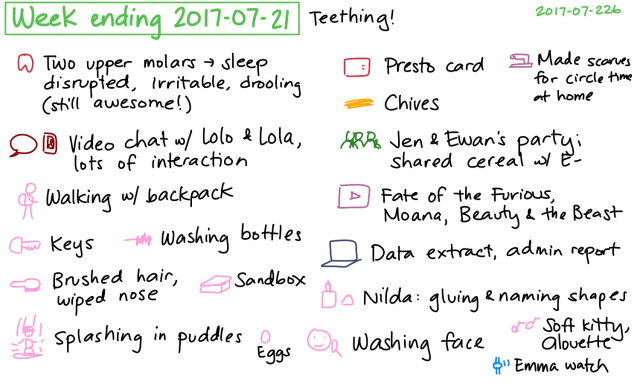 Week ending 2017-07-21 Teething!
2017-07-22b
Two upper molars → sleep
disrupted, irritable, drooling
(still awesome!)
Video chat w/ Lolo & Lola,
lots of interaction
Walking w/ backpack
Keys
Washing bottles
Brushed hair,
wiped nose
Sandbox
Splashing in puddles
Eggs
Presto card
Made scarves
for circle time
at home
Chives
Jen & Ewan's party;
shared cereal w/ E-
Fate of the Furious,
Moana, Beauty & the Beast
Data extract, admin report
Nilda: gluing & naming shapes
Washing face
Soft kitty,
Alouette
Emma watch